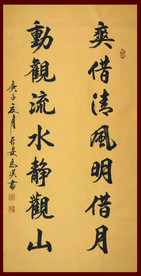 奕借清風明借月
動觀流水靜觀山
庚子夏月